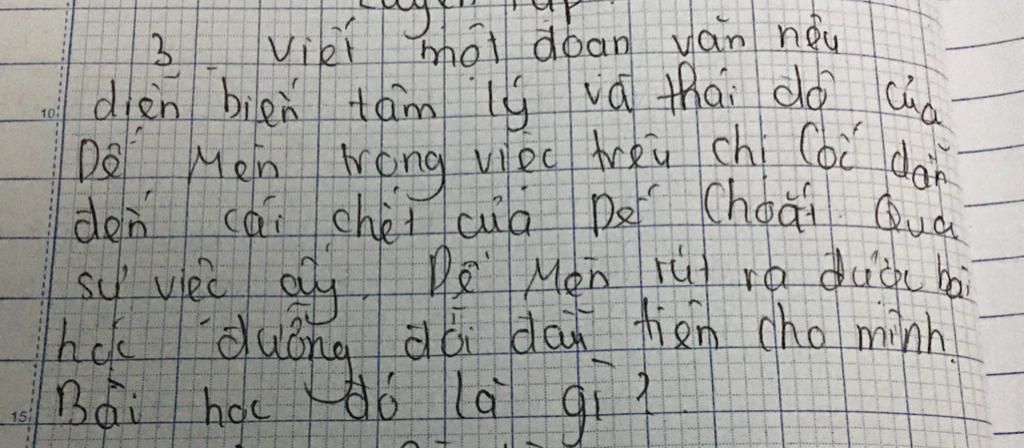 3. Viết một đoạn văn nêu
diễn biến tâm lý và thái độ của
Dế Mèn trong việc trêu chị Cốc dẫn
đến cái chết của Dế Choắt. Qua
sự việc ấy. Dế Mèn rút ra được bài
học đường đời đầu tiên cho mình.
Bài học đó là gì?